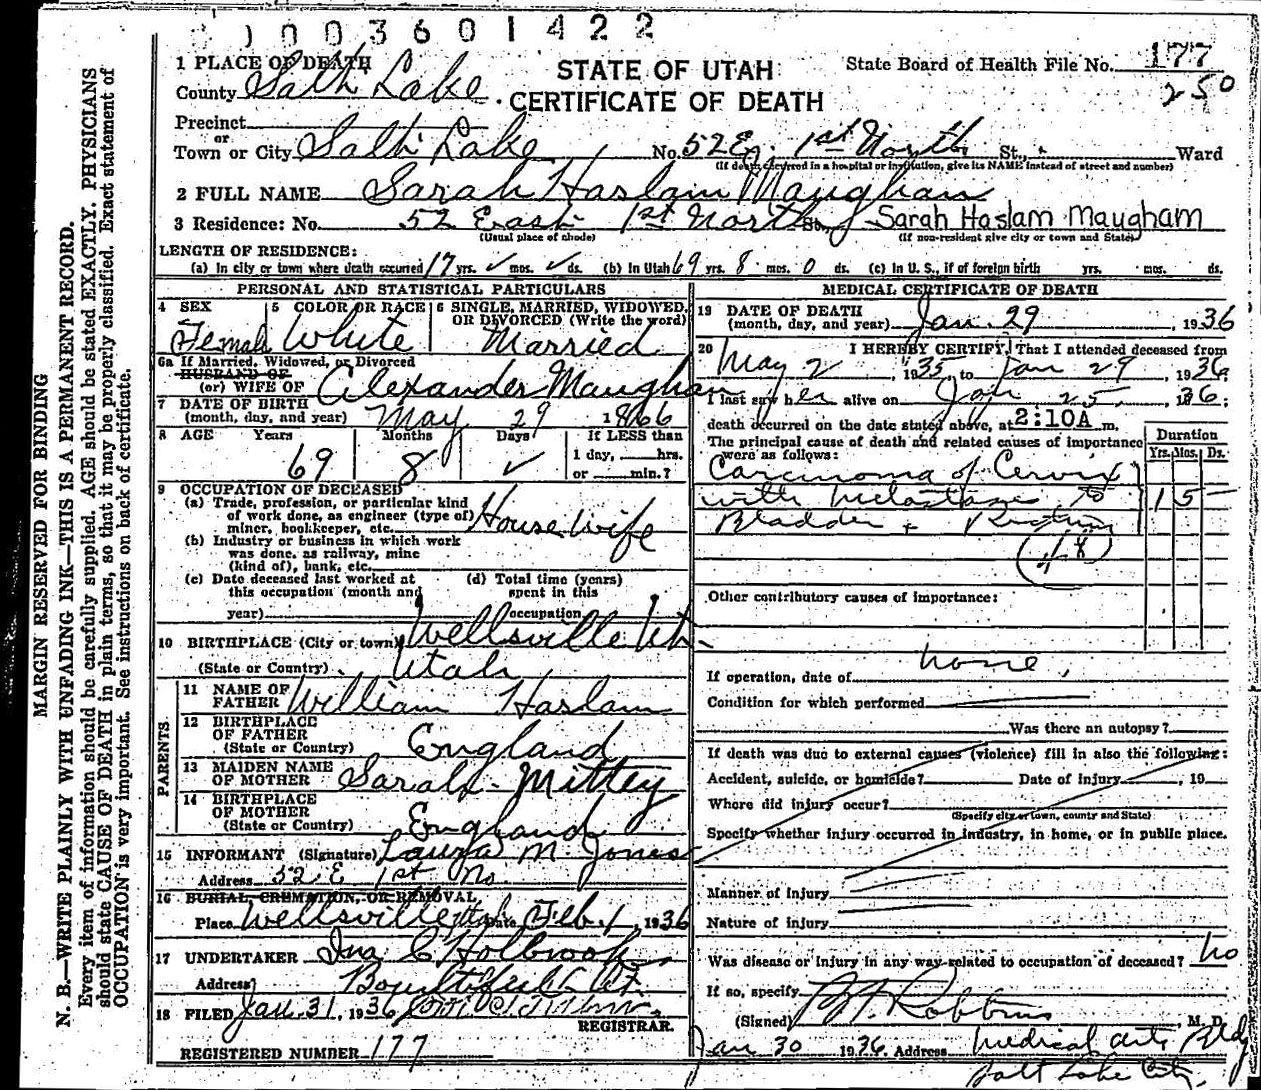 0003601422
1 PLACE OF DEATH
STATE OF UTAH
State Board of Health File No. 177
County Salt Lake
CERTIFICATE OF DEATH
250
Precinct
or
Town or City Salt Lake No. 52 E. 1st North St., Ward
(If death occurred in a hospital or institution, give its NAME instead of street and number)
2 FULL NAME Sarah Haslam Maughan
3 Residence: No. 52 East 1st North St. Sarah Haslam Maugham
(Usual place of abode) (If non-resident give city or town and State)
LENGTH OF RESIDENCE:
(a) In city or town where death occurred 17 yrs. ✓ mos. ✓ ds. (b) In Utah 69 yrs. 8 mos. 0 ds. (c) In U. S., if of foreign birth yrs. mos. ds.
PERSONAL AND STATISTICAL PARTICULARS
4 SEX 5 COLOR OR RACE 6 SINGLE, MARRIED, WIDOWED, OR DIVORCED (Write the word)
Female White Married
6a If Married, Widowed, or Divorced
HUSBAND OF
(or) WIFE OF Alexander Maughan
7 DATE OF BIRTH
(month, day, and year) May 29 1866
8 AGE Years Months Days If LESS than
1 day, hrs.
69 8 ✓ or min.?
9 OCCUPATION OF DECEASED
(a) Trade, profession, or particular kind
of work done, as engineer (type of) House Wife
miner, bookkeeper, etc.
(b) Industry or business in which work
was done, as railway, mine
(kind of), bank, etc.
(c) Date deceased last worked at (d) Total time (years)
this occupation (month and spent in this
year) occupation
10 BIRTHPLACE (City or town) Wellsville Ut.
(State or Country) Utah
PARENTS
11 NAME OF
FATHER William Haslam
12 BIRTHPLACE
OF FATHER
(State or Country) England
13 MAIDEN NAME
OF MOTHER Sarah Mittey
14 BIRTHPLACE
OF MOTHER
(State or Country) England
15 INFORMANT (Signature) Laura M. Jones
Address 52 E 1st No
16 BURIAL, CREMATION, OR REMOVAL
Place Wellsville Utah Date Feb. 1, 1936
17 UNDERTAKER Jno C Holbrook
Address Bountiful Ut.
18 FILED Jan. 31, 1936
REGISTRAR.
REGISTERED NUMBER 177
MEDICAL CERTIFICATE OF DEATH
19 DATE OF DEATH
(month, day, and year) Jan. 29, 1936
20 I HEREBY CERTIFY, That I attended deceased from
May 2, 1935 to Jan 29, 1936,
I last saw her alive on Jan 25, 1936;
death occurred on the date stated above, at 2:10A m.
The principal cause of death and related causes of importance
were as follows:
Duration
Yrs. Mos. Ds.
Carcinoma of Cervix
with metastases to 1 5 -
Bladder + Rectum
48
Other contributory causes of importance:
none
If operation, date of
Condition for which performed
Was there an autopsy?
If death was due to external causes (violence) fill in also the following:
Accident, suicide, or homicide? Date of injury , 19
Where did injury occur?
(Specify city or town, county and State)
Specify whether injury occurred in industry, in home, or in public place.
Manner of injury
Nature of injury
Was disease or injury in any way related to occupation of deceased? no
If so, specify
(Signed) Robbins, M. D.
Jan 30 1936 Address Medical Arts Bldg
Salt Lake City
MARGIN RESERVED FOR BINDING
N. B.—WRITE PLAINLY WITH UNFADING INK—THIS IS A PERMANENT RECORD.
Every item of information should be carefully supplied. AGE should be stated EXACTLY. PHYSICIANS
should state CAUSE OF DEATH in plain terms, so that it may be properly classified. Exact statement of
OCCUPATION is very important. See instructions on back of certificate.